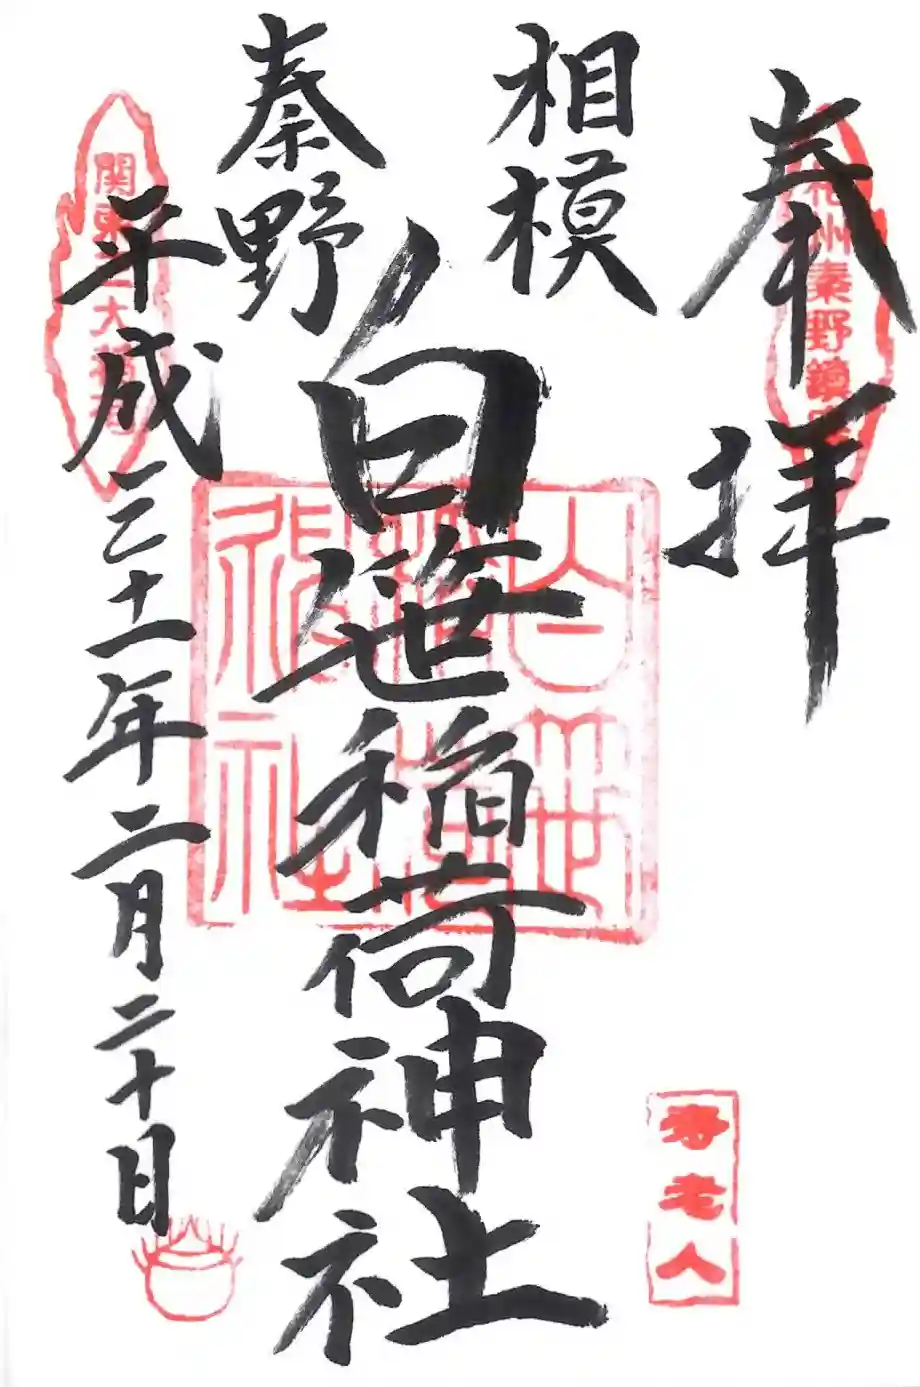 奉拝
相州秦野鎮座
寿老人
相模
秦野
白笹稲荷神社
白笹稲荷神社
平成三十一年二月二十日
関東三大稲荷